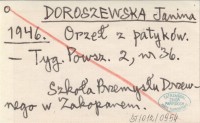 DOROSZEWSKA Janina
1946. Orzeł z patyków.
– Tyg. Powsz. 2, nr 36.
Szkoła Przemysłu Drzew-
nego w Zakopanem.